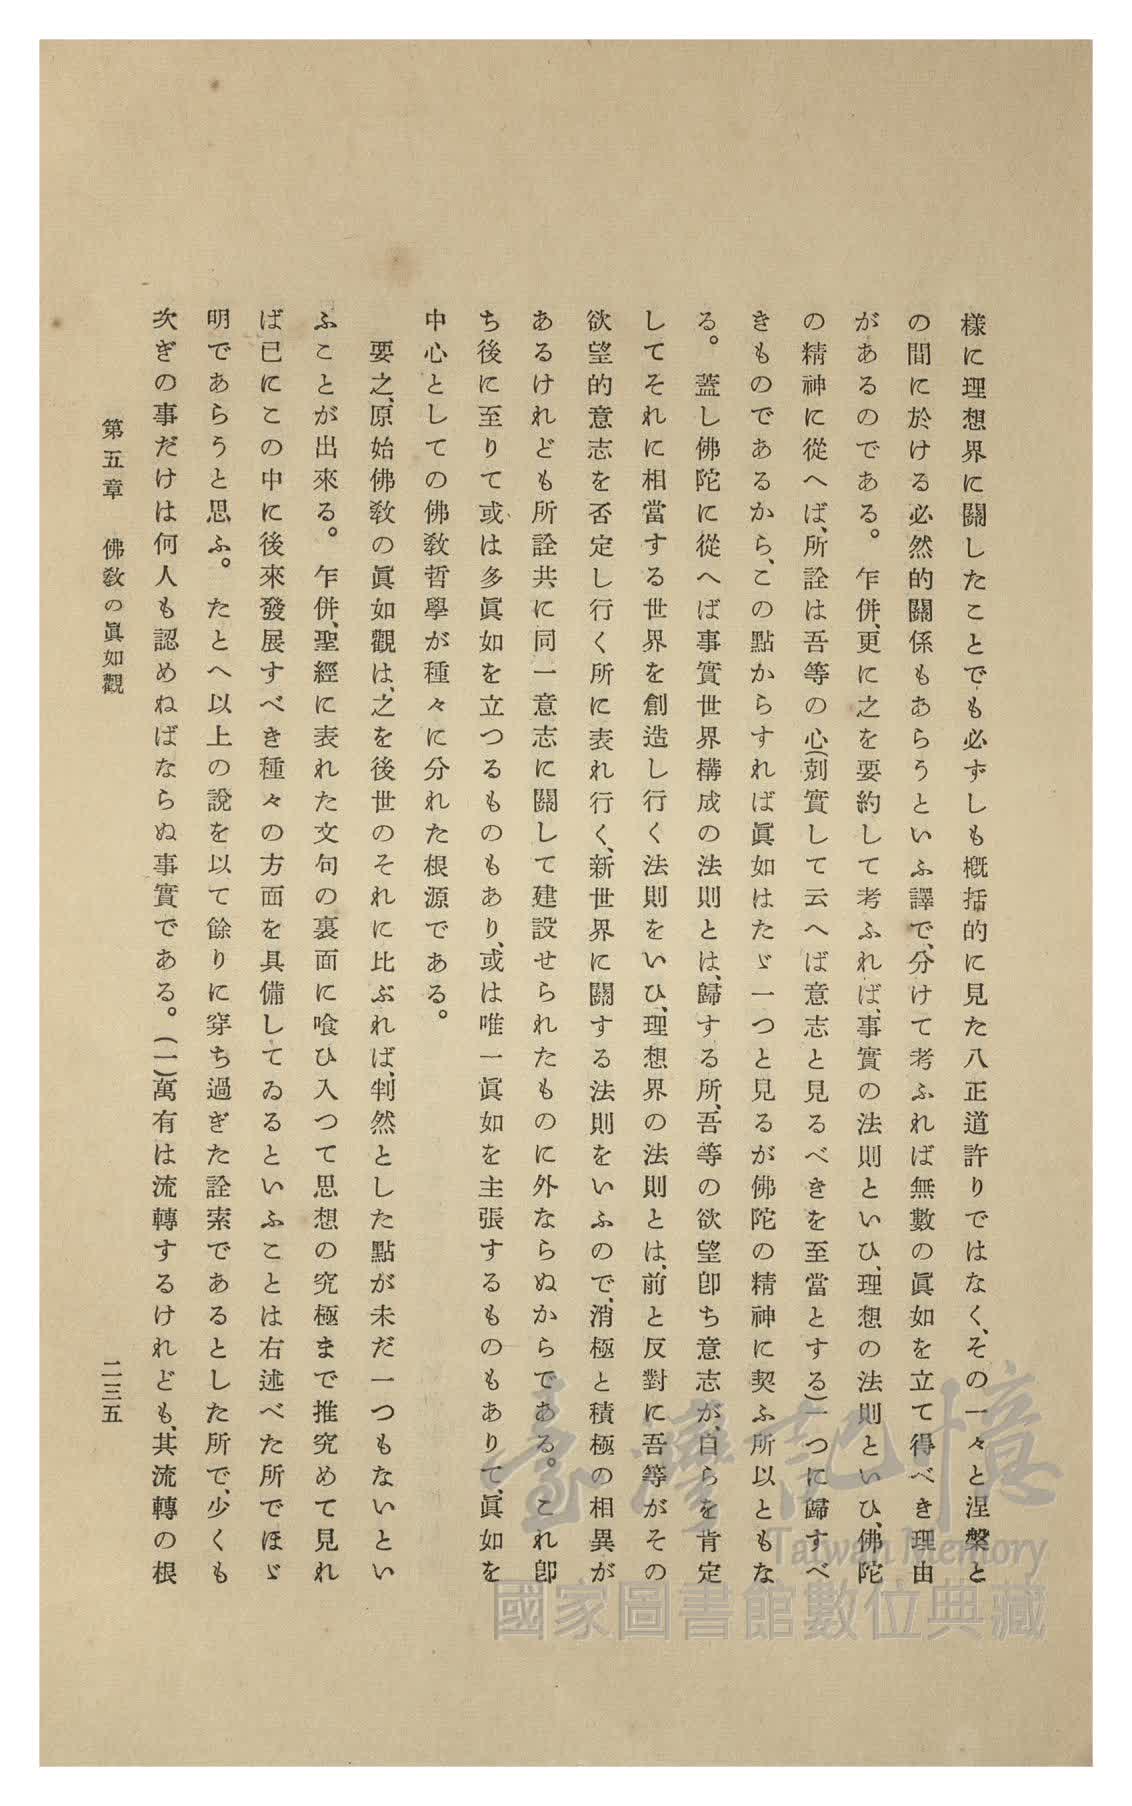 樣に理想界に關したことでも必ずしも槪括的に見た八正道許りではなく、その一々と涅槃と
の間に於ける必然的關係もあらうといふ譯で、分けて考ふれば無數の眞如を立て得べき理由
があるのである。乍併、更に之を要約して考ふれば、事實の法則といひ、理想の法則といひ、佛陀
の精神に從へば、所詮は吾等の心(剋實して云へば意志と見るべきを至當とする)一つに歸すべ
きものであるから、この點からすれば眞如はたゞ一つと見るが佛陀の精神に契ふ所以ともな
る。蓋し佛陀に從へば事實世界構成の法則とは、歸する所、吾等の欲望卽ち意志が、自らを肯定
してそれに相當する世界を創造し行く法則をいひ、理想界の法則とは、前と反對に吾等がその
欲望的意志を否定し行く所に表れ行く、新世界に關する法則をいふので、消極と積極の相異が
あるけれども所詮共に同一意志に關して建設せられたものに外ならぬからである。これ卽
ち後に至りて或は多眞如を立つるものもあり、或は唯一眞如を主張するものもありて、眞如を
中心としての佛敎哲學が種々に分れた根源である。
要之、原始佛敎の眞如觀は、之を後世のそれに比ぶれば、判然とした點が未だ一つもないとい
ふことが出來る。乍併、聖經に表れた文句の裏面に喰ひ入つて思想の究極まで推究めて見れ
ば已にこの中に後來發展すべき種々の方面を具備してゐるといふことは右述べた所でほゞ
明であらうと思ふ。たとへ以上の說を以て餘りに穿ち過ぎた詮索であるとした所で、少くも
次ぎの事だけは何人も認めねばならぬ事實である。(一)萬有は流轉するけれども、其流轉の根
第五章　佛敎の眞如觀
二三五
臺灣記憶
Taiwan Memory
國家圖書館數位典藏